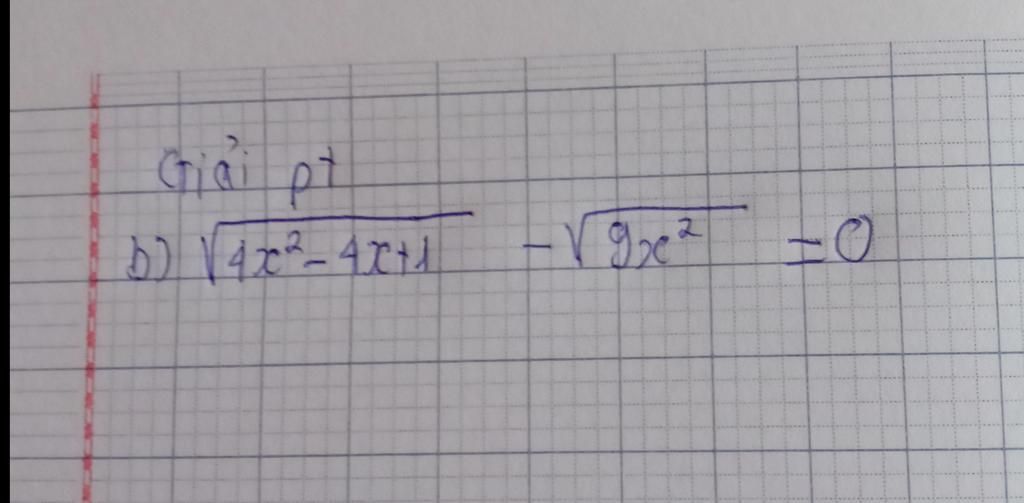 Giải pt
b) √(4x² - 4x + 1) - √(9x²) = 0